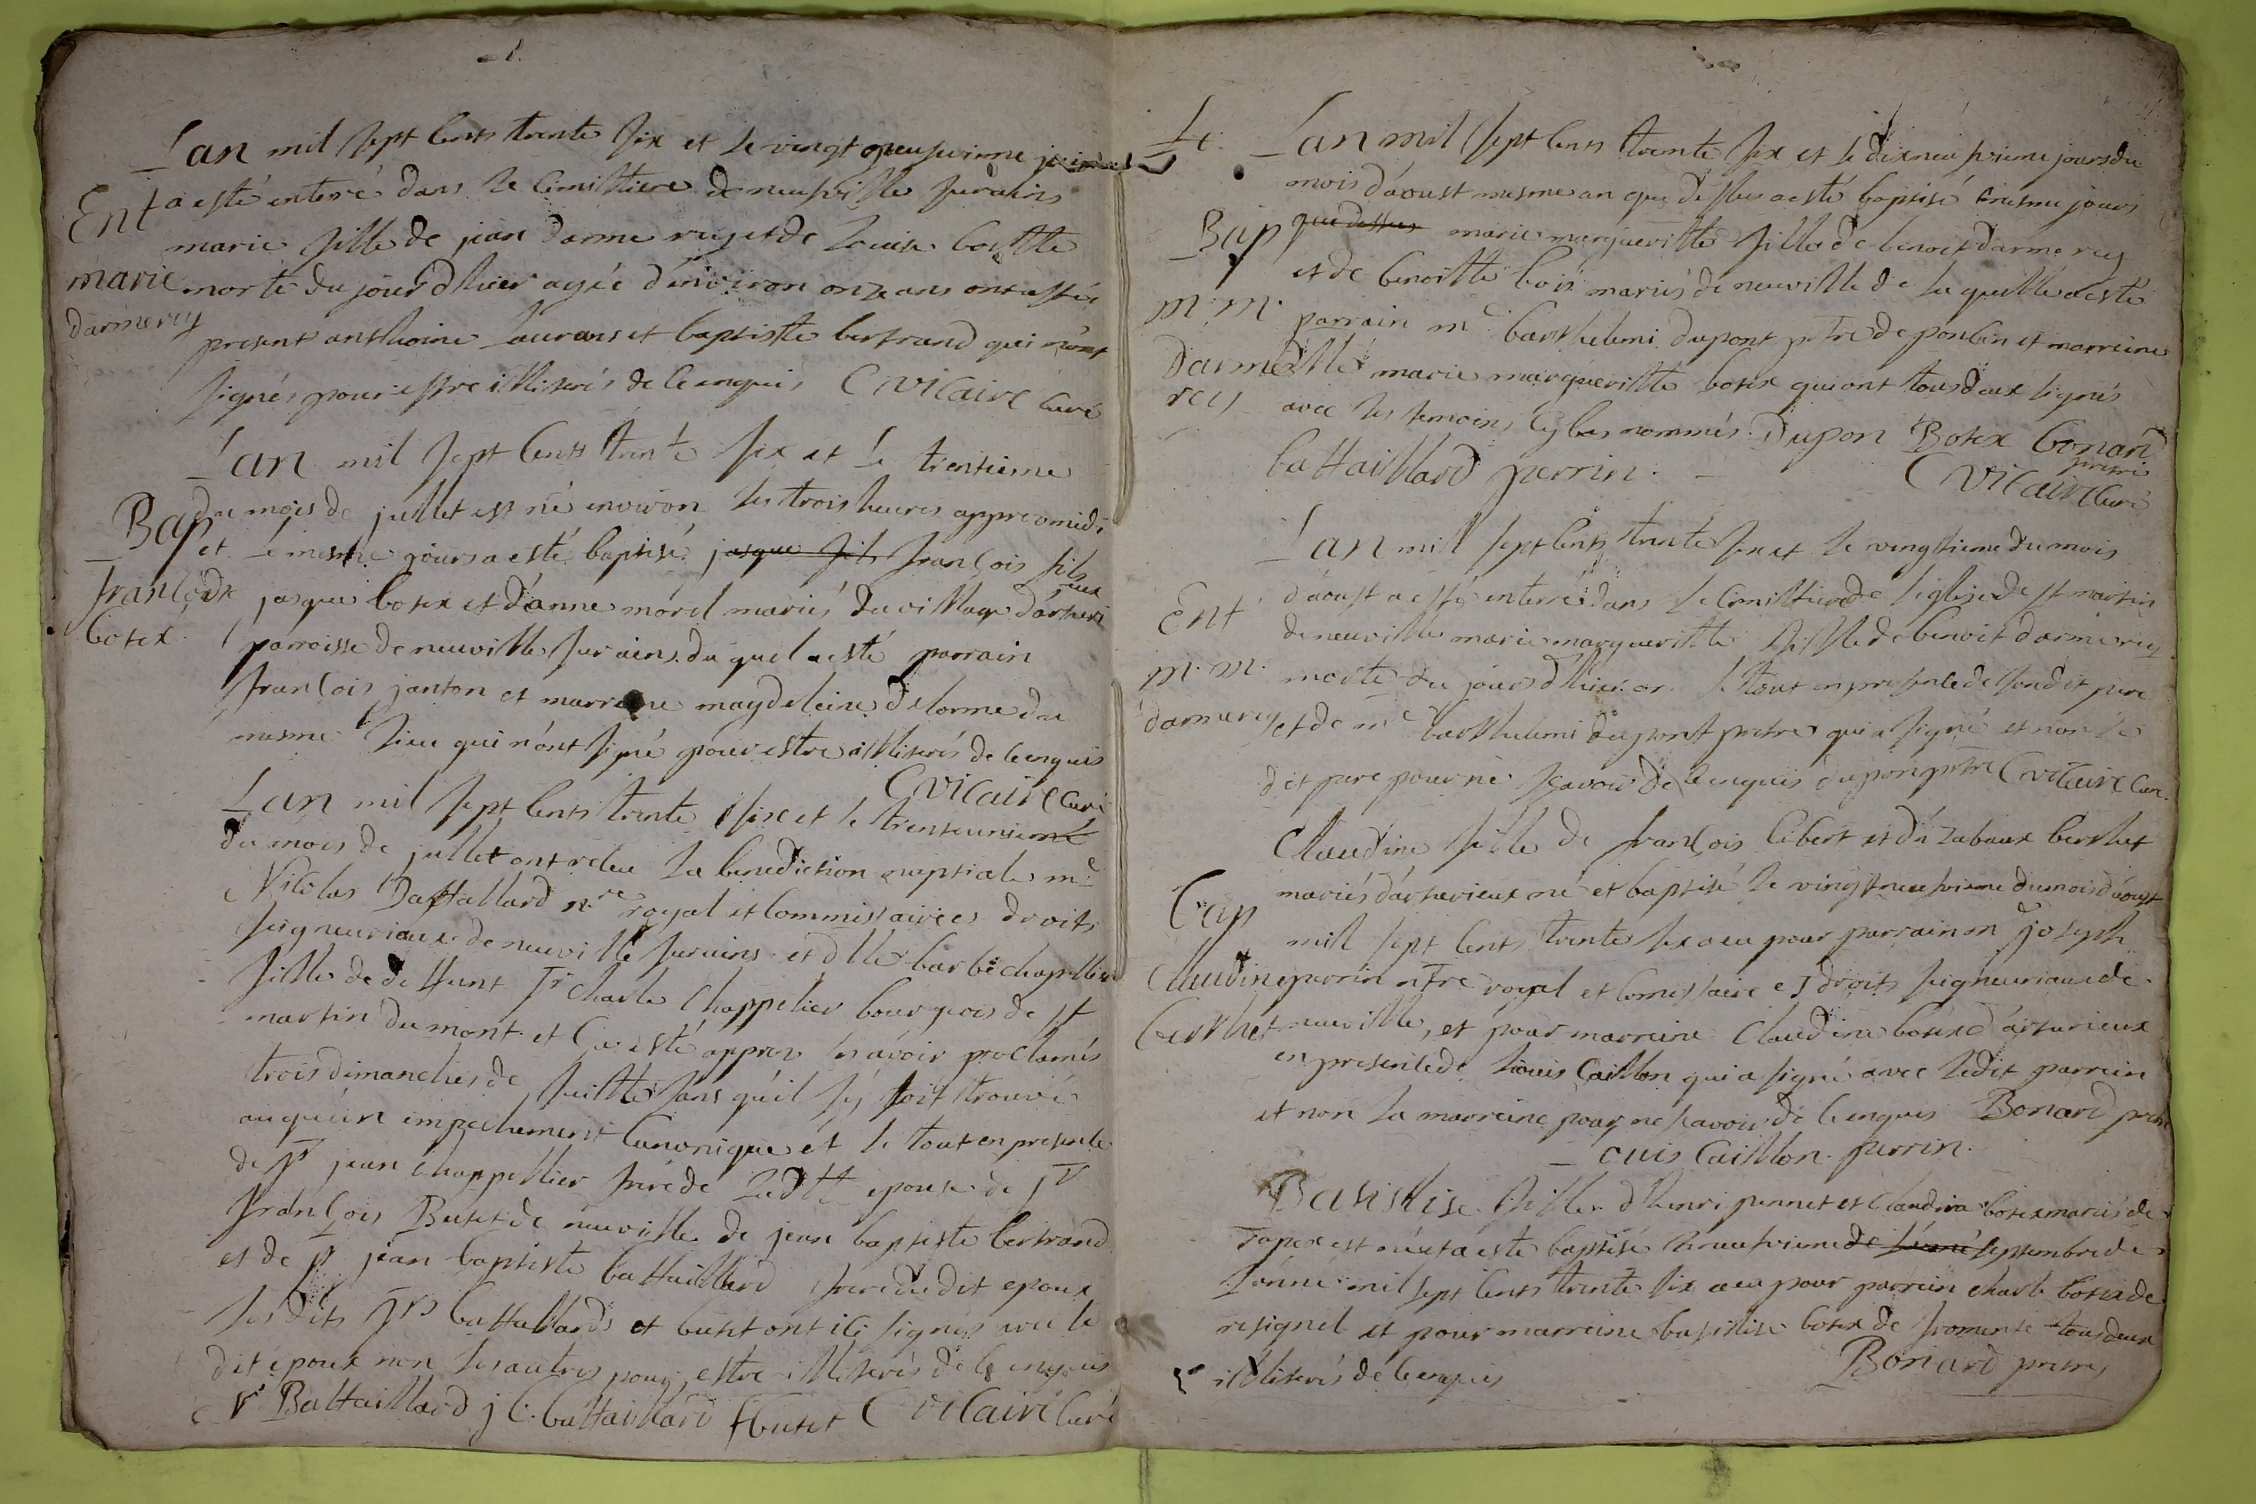 Lan mil sept cents trente six et le vingt neufvieme
Ent a esté enteré dans le cimittiere de neufville sur ains
marie fille de jean darmerey et de Louise
marie morte du jour d'hier agée d'environ onze ans ont estés
darmerey present anthoine Laurans et baptiste bertrand qui n'ont
signés pour estre illiterés de ce enquis C vicaire curé
Lan mil sept cents trente six et le trentieme
du mois de juillet est né environ les trois heures appres midi
Bap et le mesme jours a esté baptisé jasque fils françois fils
françois de jasque botex et d'anne morel mariés du village d'arturieux
botex parroisse de neuville sur ains du quel a esté parrain
françois janton et marreine magdeleine delorme du
mesme lieu qui n'ont signé pour estre illiterés de ce enquis
C vicaire curé
Lan mil sept cents trente six et le trenteunieme
du mois de jullet ont receu la benediction nuptiale me
Nicolas Battallard nre royal et commissaire es droits
seigneuriaux de neuville sur ains et dlle barbe chapellier
fille de deffunt sr charle chappelier bourgeois de st
martin du mont et ce a esté apprez les avoir proclamés
trois dimanches de suitte sans qu'il s'y soit trouvé
auqueun empechement canonique et le tout en presence
de sr jean chappellier frere de ladtt epouse de sr
françois Butet de neuville de jean baptiste bertrand
et de sr jean baptiste battaillard frere dudit epoux
lesdits srs battallards et butet ont ici signés avec le
dit epoux non les autres pour estre illiterés de ce enquis
Battaillard j b battaillard f butet C vicaire curé
Lan mil sept cents trente six et le dixneufvieme jours du
mois d'aoust mesme an que dessus a esté baptisé mesme jours
Bap que dessus marie margueritte fille de benoit darmerey
et de benoitte bois mariés de neuville de la quelle a esté
m. m. parrain me barthelemi dupont ptre de poncin et marreine
darme dlle marie margueritte botex qui ont tous deux signés
rey avec les temoins cy bas nommés. Dupon Botex Bonard
battaillard perrin. pretre
C vicaire curé
Lan mil sept cents trente six et le vingtieme du mois
d'aoust a esté enterré dans le cimittiere de l'eglise de st martin
Ent de neuville marie margueritte fille de benoit darmerey
m. m. morte du jours d'hier le tout en presence de sondit pere
darmerey et de me barthelemi dupont pretre qui a signé et non le
dit pere pour ne sçavoir de ce enquis dupon ptre C vicaire cure
Claudine fille de françois libert et d'izabeau berthet
mariés d'arturieux né et baptisé le vingt neufvieme du mois d'aoust
Bap mil sept cents trente six a eu pour parrain m joseph
Claudine perrin ntre royal et comissaire es droits seigneuriaux de
berthet neuville, et pour marreine Claudine botex d'arturieux
en presence de Louis Caillon qui a signé avec ledit parrein
et non la marreine pour ne sçavoir de ce enquis Bonard pretre
Louis Caillon. perrin.
Basislise fille d'henri pennet et Claudine botex mariés de
est née et a esté baptisé le neufvieme de l'anné septembre de
l'anné mil sept cents trente six a eu pour parrein charle botex de
resignel et pour marreine basislise botex de fromente tous deux
illiterés de ce enquis Bonard pretre